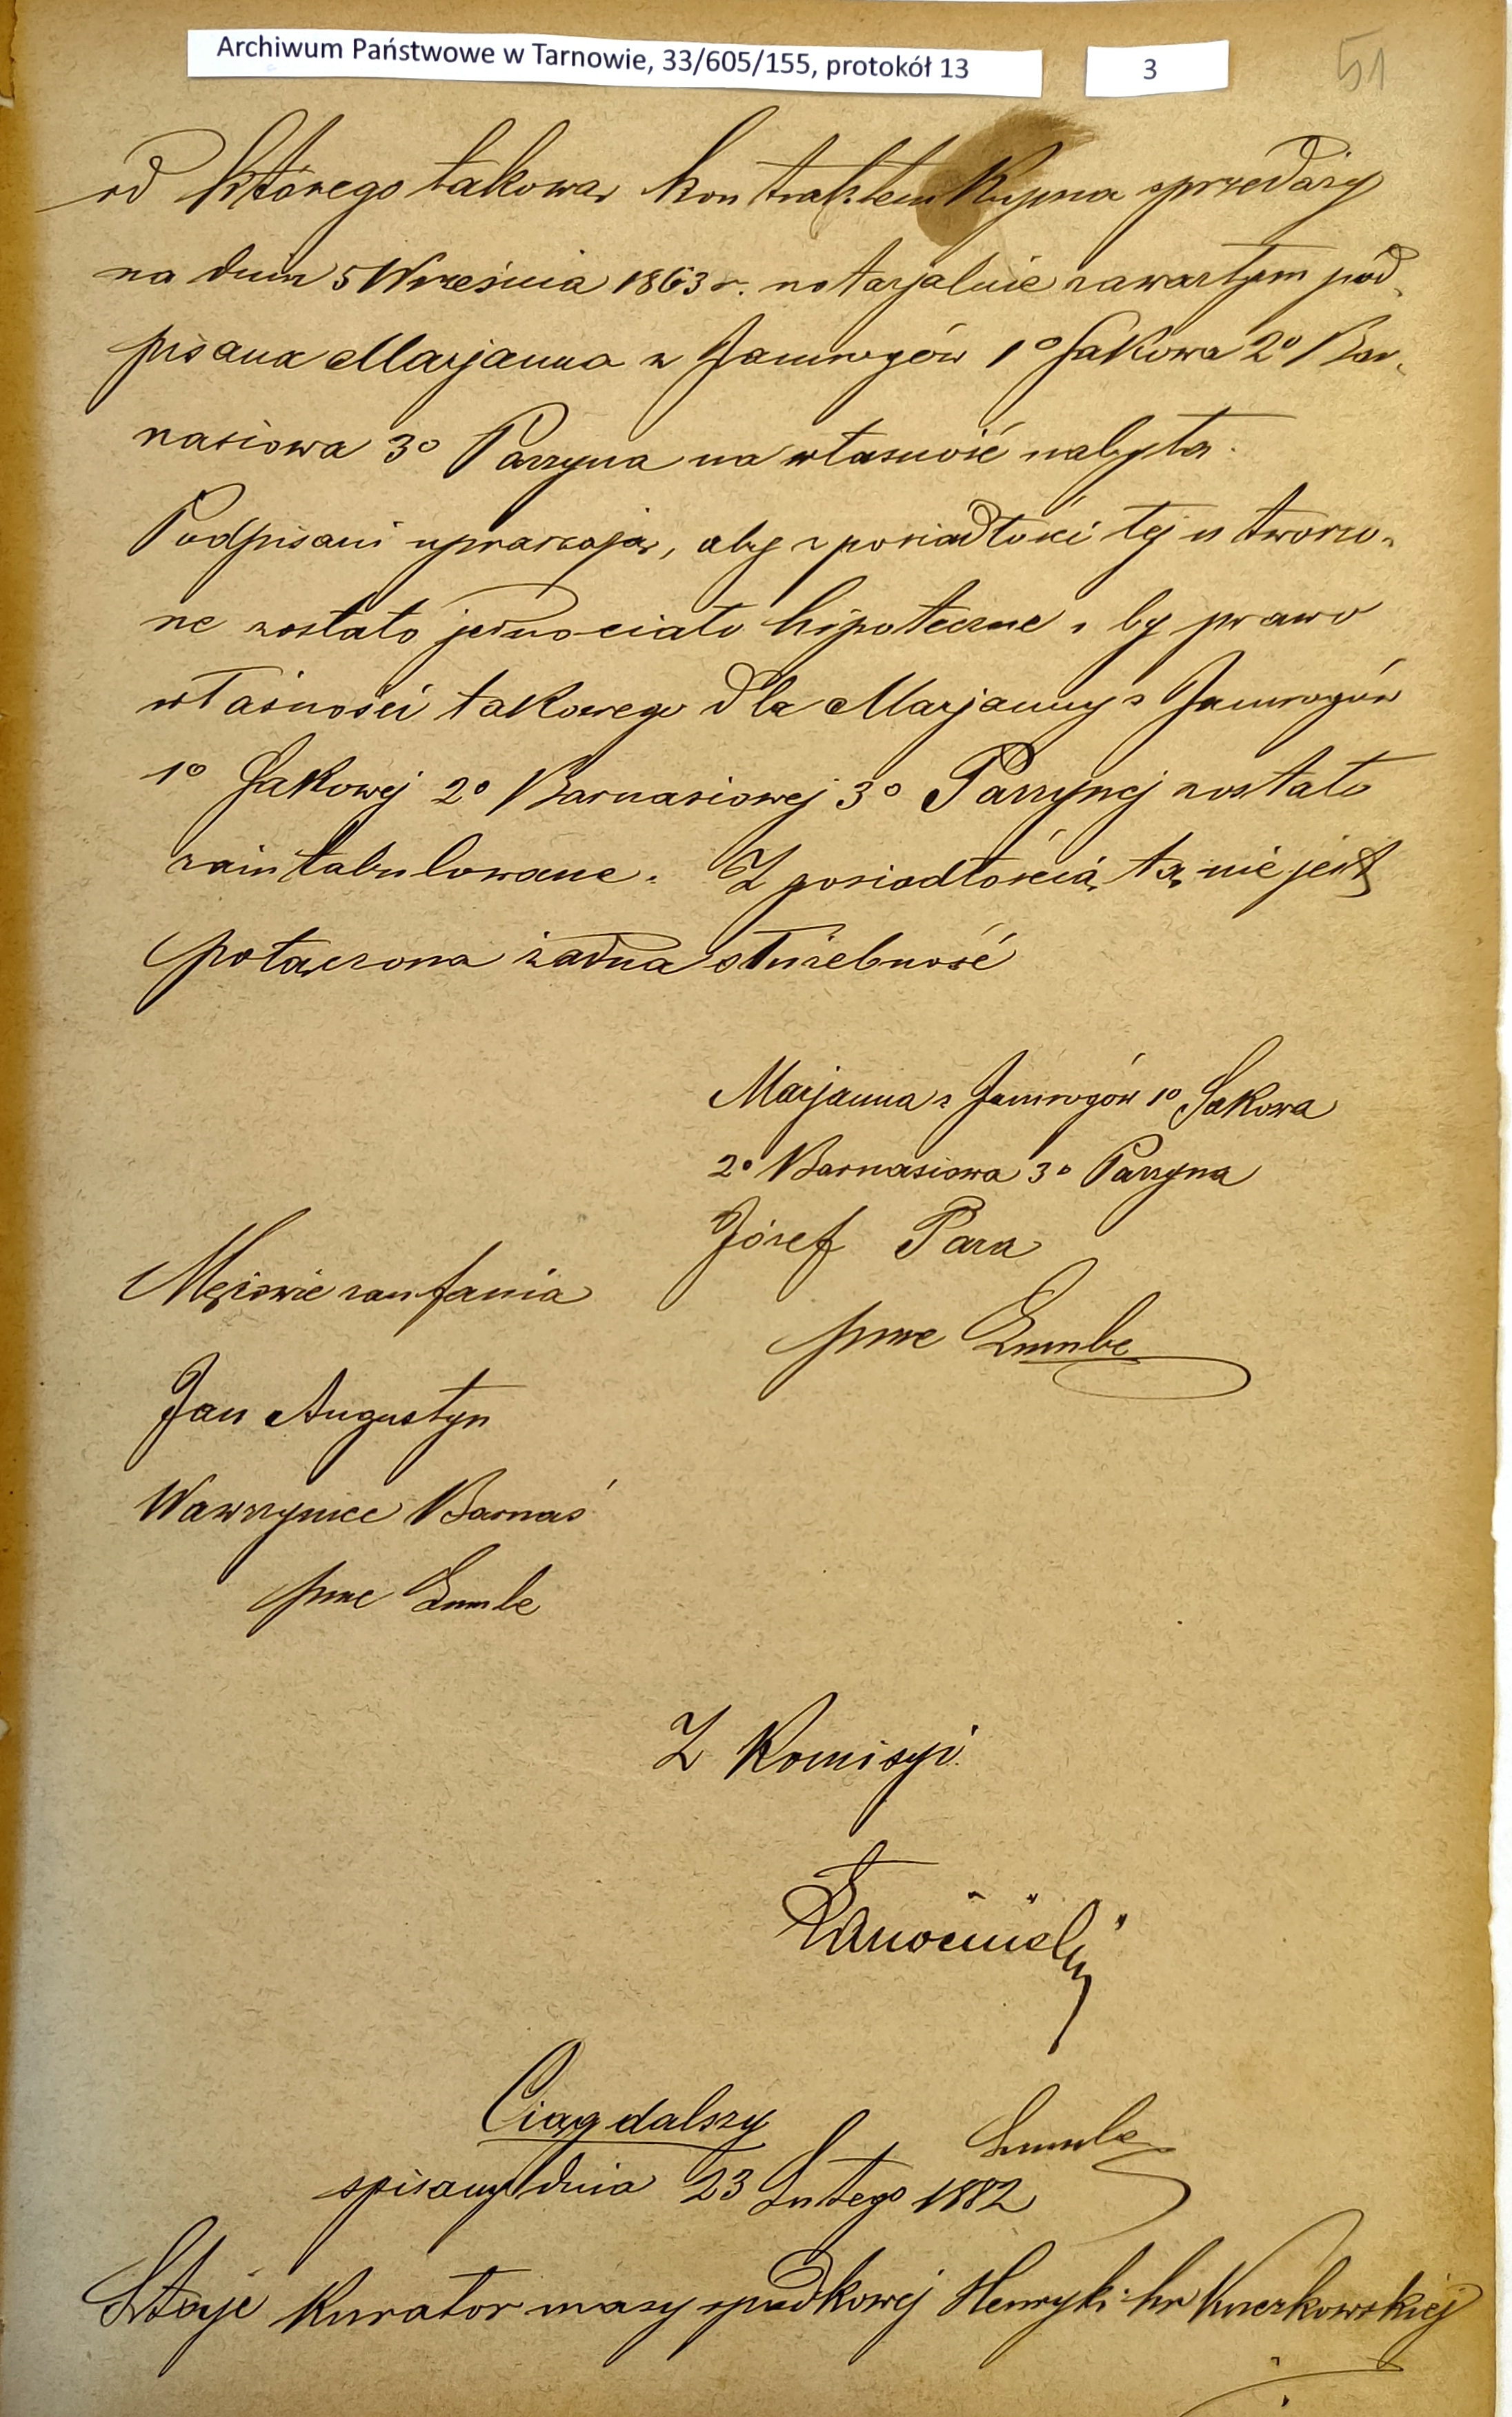 Archiwum Państwowe w Tarnowie, 33/605/155, protokół 13
3
51
od którego takową kontraktem Kupna sprzedaży
na dniu 5 Września 1863 r. notarjalnie zawartym pod„
pisana Marjanna z Jamrogów 1º Sakowa 2º Bar„
nasiowa 3º Parzyna na własność nabyła.
Podpisani upraszają, aby z posiadłości tej utworzo„
ne zostało jedno ciało hipoteczne, by prawo
własności takowego dla Marjanny z Jamrogów
1º Sakowej 2º Barnasiowej 3º Parzynej zostało
zaintabulowane. Z posiadłością tą nie jest
połączona żadna służebność
Marjanna z Jamrogów 1º Sakowa
2º Barnasiowa 3º Parzyna
Józef Para
Mężowie zaufania
pme
Jan Augustyn
Wawrzyniec Barnaś
pme
Z Komisyi
Ciąg dalszy
spisany dnia 23 Lutego 1882
Staje Kurator masy spadkowej Henryki hr Kuczkowskiej